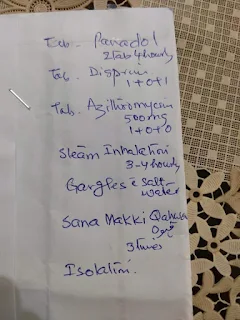 Tab. Panadol
2Tab 4 hourly
Tab. Disprin
1+0+1
Tab. Azithromycin
500mg
1+0+0
Steam Inhalation
3-4 hourly
Gargles c̄ salt
water
Sana Makki Qahwa
3 times
Isolation.